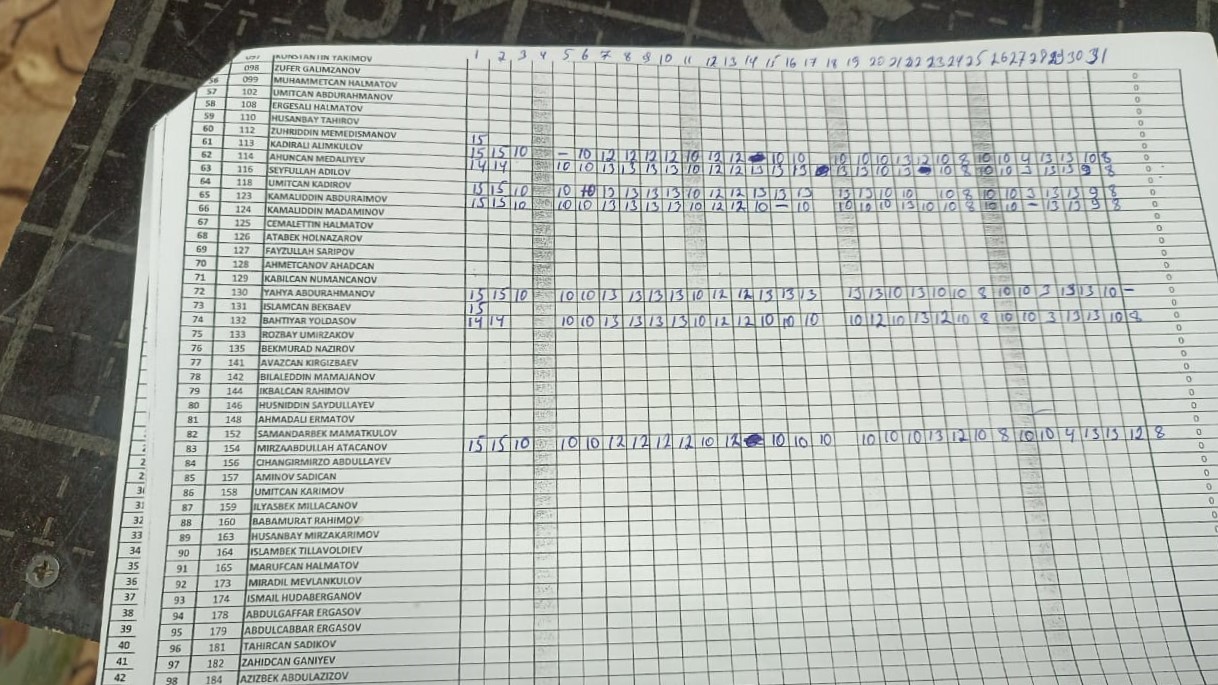 1 2 3 4 5 6 7 8 9 10 11 12 13 14 15 16 17 18 19 20 21 22 23 24 25 26 27 28 29 30 31
097 KONSTANTIN YAKIMOV
098 ZUFER GALIMZANOV 0
56 099 MUHAMMETCAN HALMATOV 0
57 102 UMITCAN ABDURAHMANOV 0
58 108 ERGESALI HALMATOV 0
59 110 HUSANBAY TAHIROV 0
60 112 ZUHRIDDIN MEMEDISMANOV 0
61 113 KADIRALI ALIMKULOV 15 0
62 114 AHUNCAN MEDALIYEV 15 15 10 – 10 12 12 12 12 10 12 12 10 10 10 10 10 13 12 10 8 10 10 4 13 13 10 8 0
63 116 SEYFULLAH ADILOV 14 14 10 10 13 13 13 13 10 12 12 13 13 13 13 13 10 13 10 8 10 10 3 13 13 9 8 0
64 118 UMITCAN KADIROV 0
65 123 KAMALIDDIN ABDURAIMOV 15 15 10 10 10 13 13 13 13 10 12 12 13 13 13 13 13 10 10 10 8 10 10 3 13 13 9 8 0
66 124 KAMALIDDIN MADAMINOV 15 15 10 10 10 13 13 13 13 10 12 12 10 – 10 10 10 10 13 10 10 8 10 10 – 13 13 9 8 0
67 125 CEMALETTIN HALMATOV 0
68 126 ATABEK HOLNAZAROV 0
69 127 FAYZULLAH SARIPOV 0
70 128 AHMETCANOV AHADCAN 0
71 129 KABILCAN NUMANCANOV 0
72 130 YAHYA ABDURAHMANOV 15 15 10 10 10 13 13 13 13 10 12 12 13 13 13 13 13 10 13 10 10 8 10 10 3 13 13 10 – 0
73 131 ISLAMCAN BEKBAEV 15 0
74 132 BAHTIYAR YOLDASOV 14 14 10 10 13 13 13 13 10 12 12 10 10 10 10 12 10 13 12 10 8 10 10 3 13 13 10 8 0
75 133 ROZBAY UMIRZAKOV 0
76 135 BEKMURAD NAZIROV 0
77 141 AVAZCAN KIRGIZBAEV 0
78 142 BILALEDDIN MAMAJANOV 0
79 144 IKBALCAN RAHIMOV 0
80 146 HUSNIDDIN SAYDULLAYEV 0
81 148 AHMADALI ERMATOV 0
82 152 SAMANDARBEK MAMATKULOV 0
83 154 MIRZAABDULLAH ATACANOV 15 15 10 10 10 12 12 12 12 10 12 10 10 10 10 10 10 13 12 10 8 10 10 4 13 13 12 8 0
84 156 CIHANGIRMIRZO ABDULLAYEV 0
85 157 AMINOV SADICAN 0
86 158 UMITCAN KARIMOV 0
87 159 ILYASBEK MILLACANOV 0
32 88 160 BABAMURAT RAHIMOV 0
33 89 163 HUSANBAY MIRZAKARIMOV 0
34 90 164 ISLAMBEK TILLAVOLDIEV
35 91 165 MARUFCAN HALMATOV
36 92 173 MIRADIL MEVLANKULOV
37 93 174 ISMAIL HUDABERGANOV
38 94 178 ABDULGAFFAR ERGASOV
39 95 179 ABDULCABBAR ERGASOV
40 96 181 TAHIRCAN SADIKOV
41 97 182 ZAHIDCAN GANIYEV
42 98 184 AZIZBEK ABDULAZIZOV